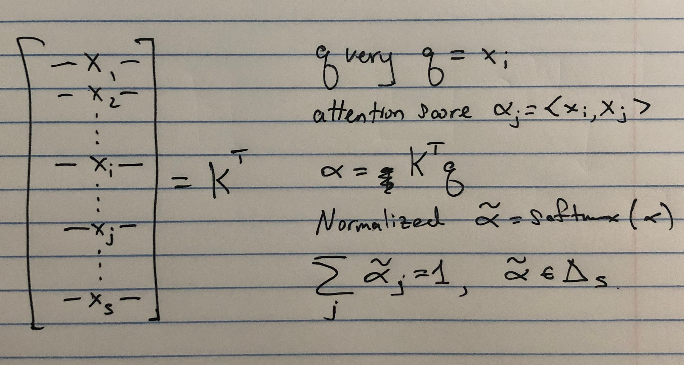 — x₁ —
— x₂ —
⋮
— xᵢ —
⋮
— xⱼ —
⋮
— xₛ —
= Kᵀ
query q = xᵢ
attention score αⱼ = <xᵢ, xⱼ>
α = Kᵀq
Normalized α̃ = softmax(α)
∑ⱼ α̃ⱼ = 1, α̃ ∈ Δₛ